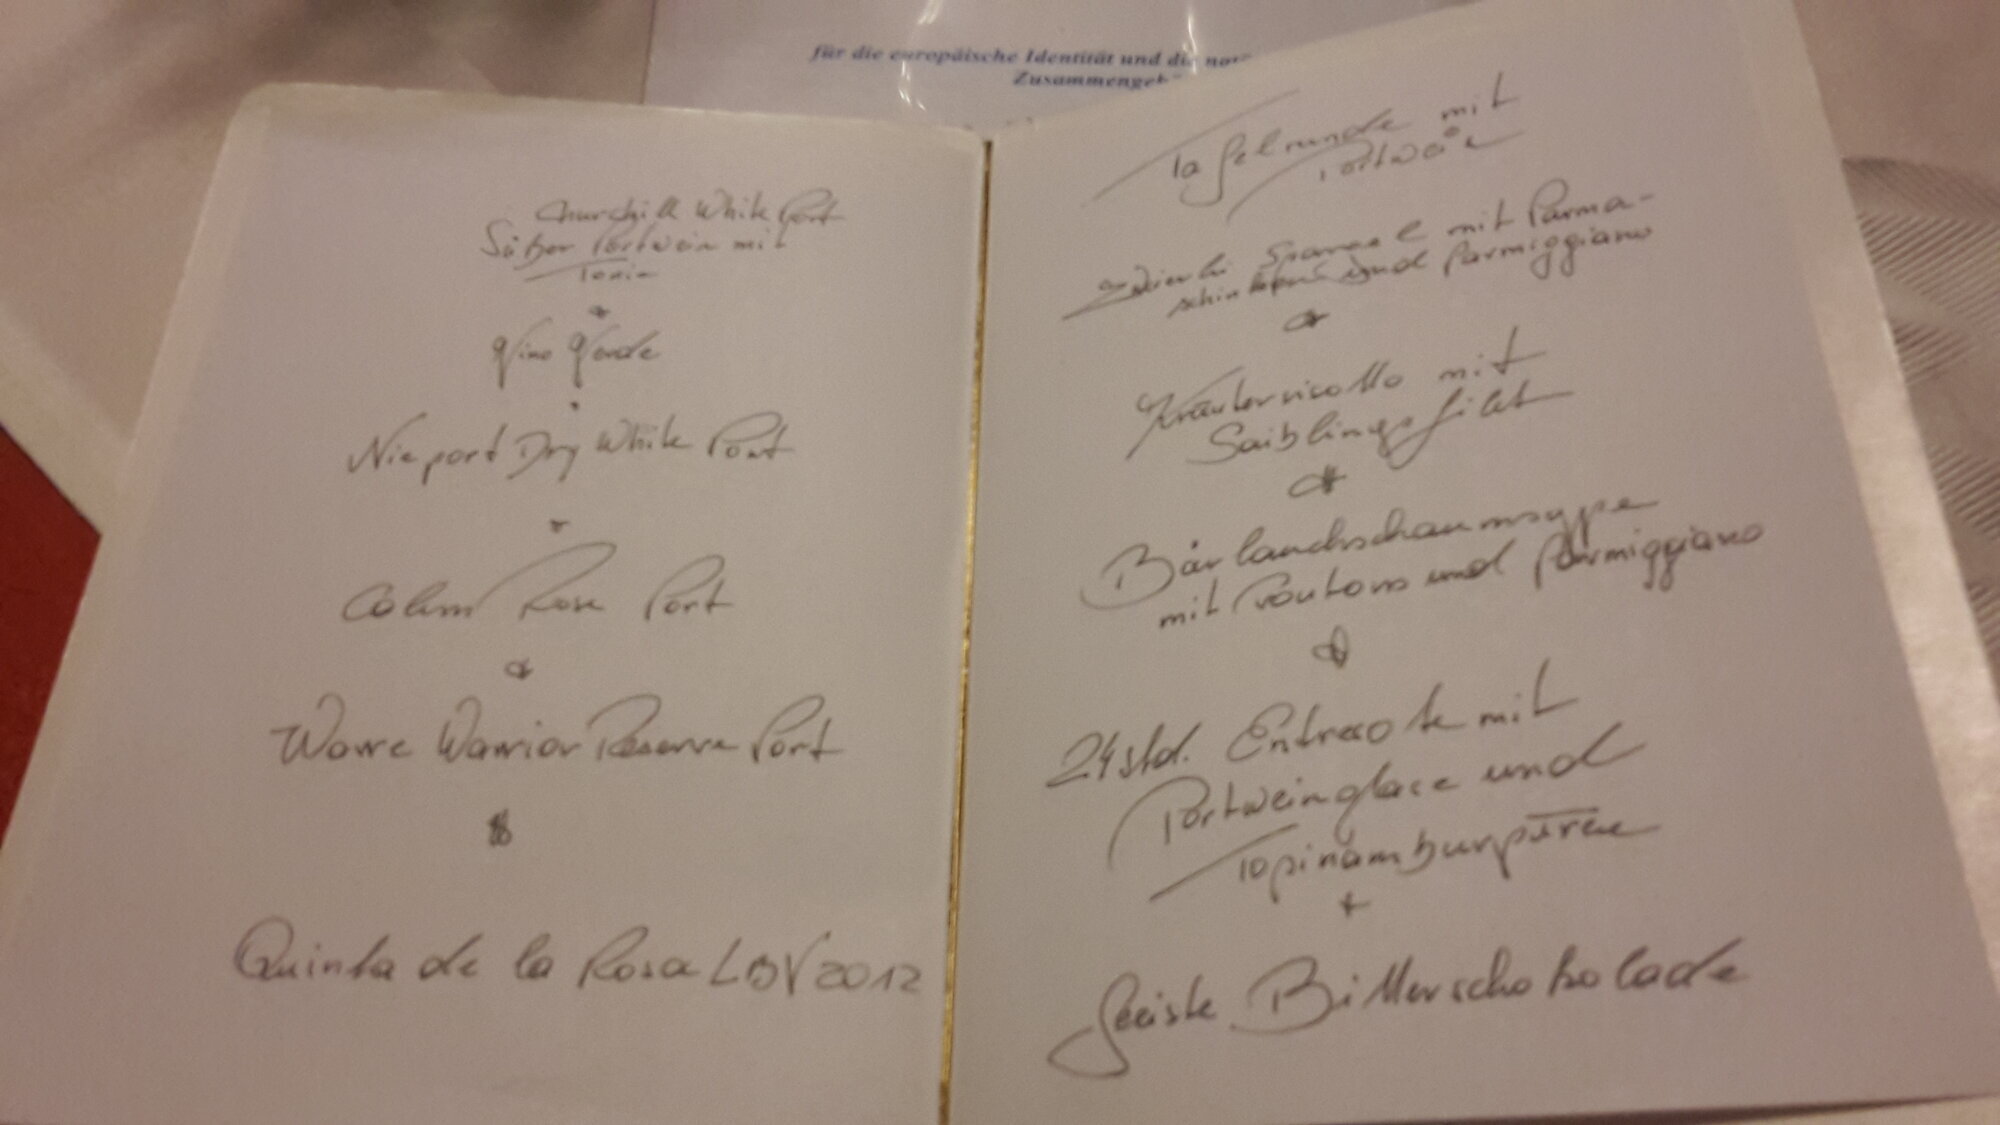 für die europäische Identität und die
Zusammengeh
Churchill White Port
Süßer Portwein mit
Tonic
Vino Verde
Nieport Dry White Port
Rose Port
Warre Warrior Reserve Port
Quinta de la Rosa LBV 2012
Tafelrunde mit
Portwein
Spargel mit Parma-
schinken und Parmiggiano
Kräuterrisotto mit
Saiblingsfilet
Bärlauchschaumsuppe
mit Croutons und Parmiggiano
24 std. Entrecote mit
Portweinglace und
Topinamburpüree
Geeiste Bitterschokolade